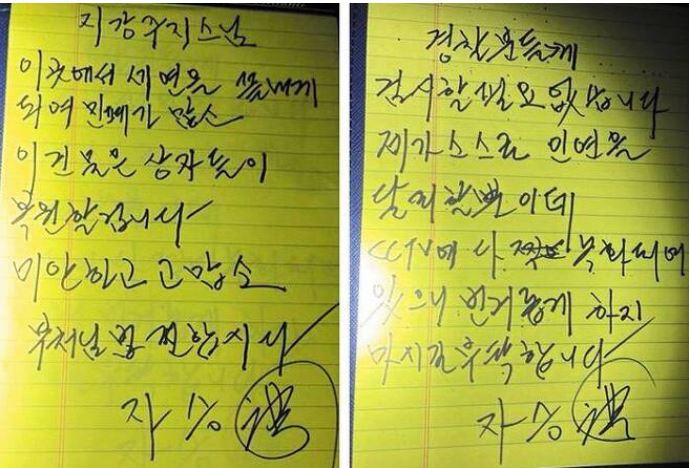 지강주지스님
이곳에서 세연을 끝내게
되여 민폐가 많소
이 건물은 상자들이
복원할겁니다
미안하고 고맙소
부처님법 전합시다
자승
경찰분들께
검시할 필요 없습니다
제가 스스로 인연을
달리할뿐이데
CCTV에 다 녹화되어
있으니 번거롭게 하지
마시길 부탁합니다
자승